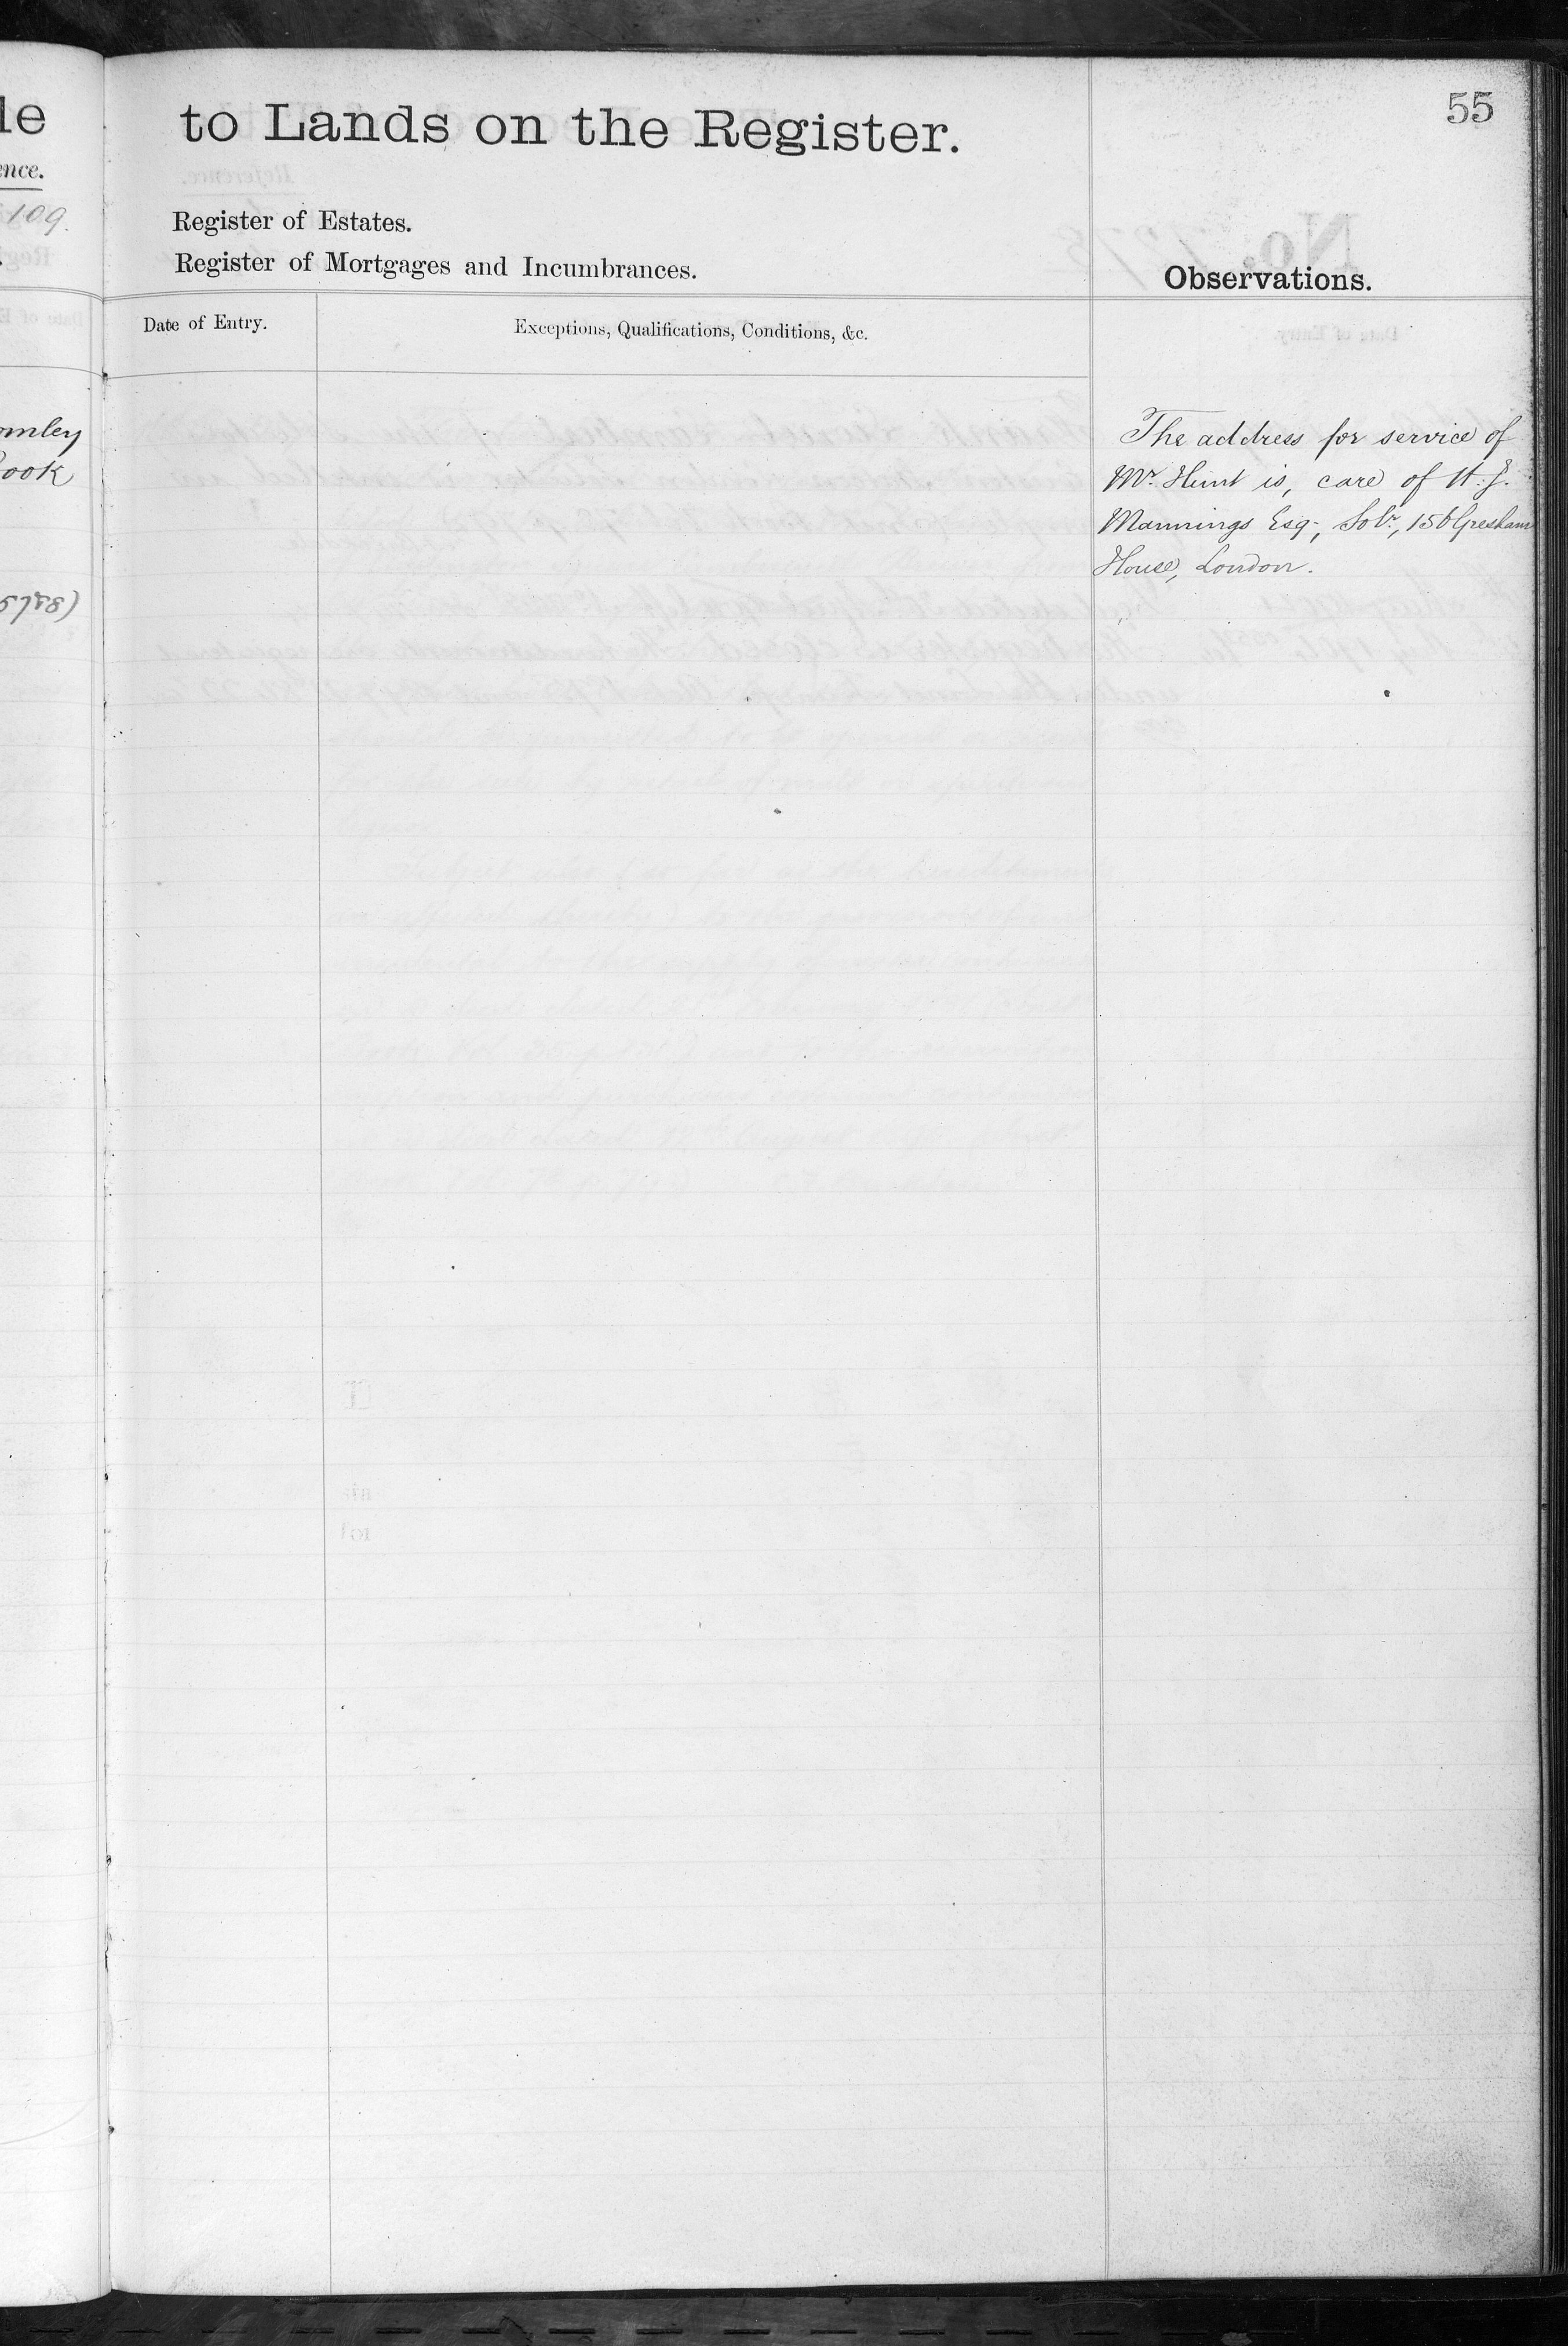 55
le
to Lands on the Register.
ence.
109.
Register of Estates.
Register of Mortgages and Incumbrances.
Observations.
Date of Entry.
Exceptions, Qualifications, Conditions, &c.
omley
ook
The address for service of
Mr. Hunt is, care of H. J.
Mannings Esq., Solr., 156 Gresham
House, London.